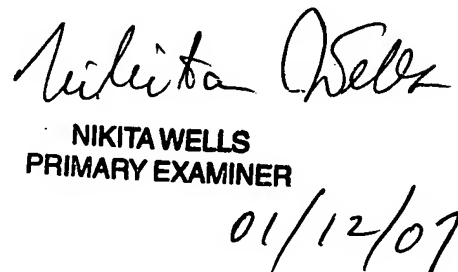 Nikita Wells
NIKITA WELLS
PRIMARY EXAMINER
01/12/07